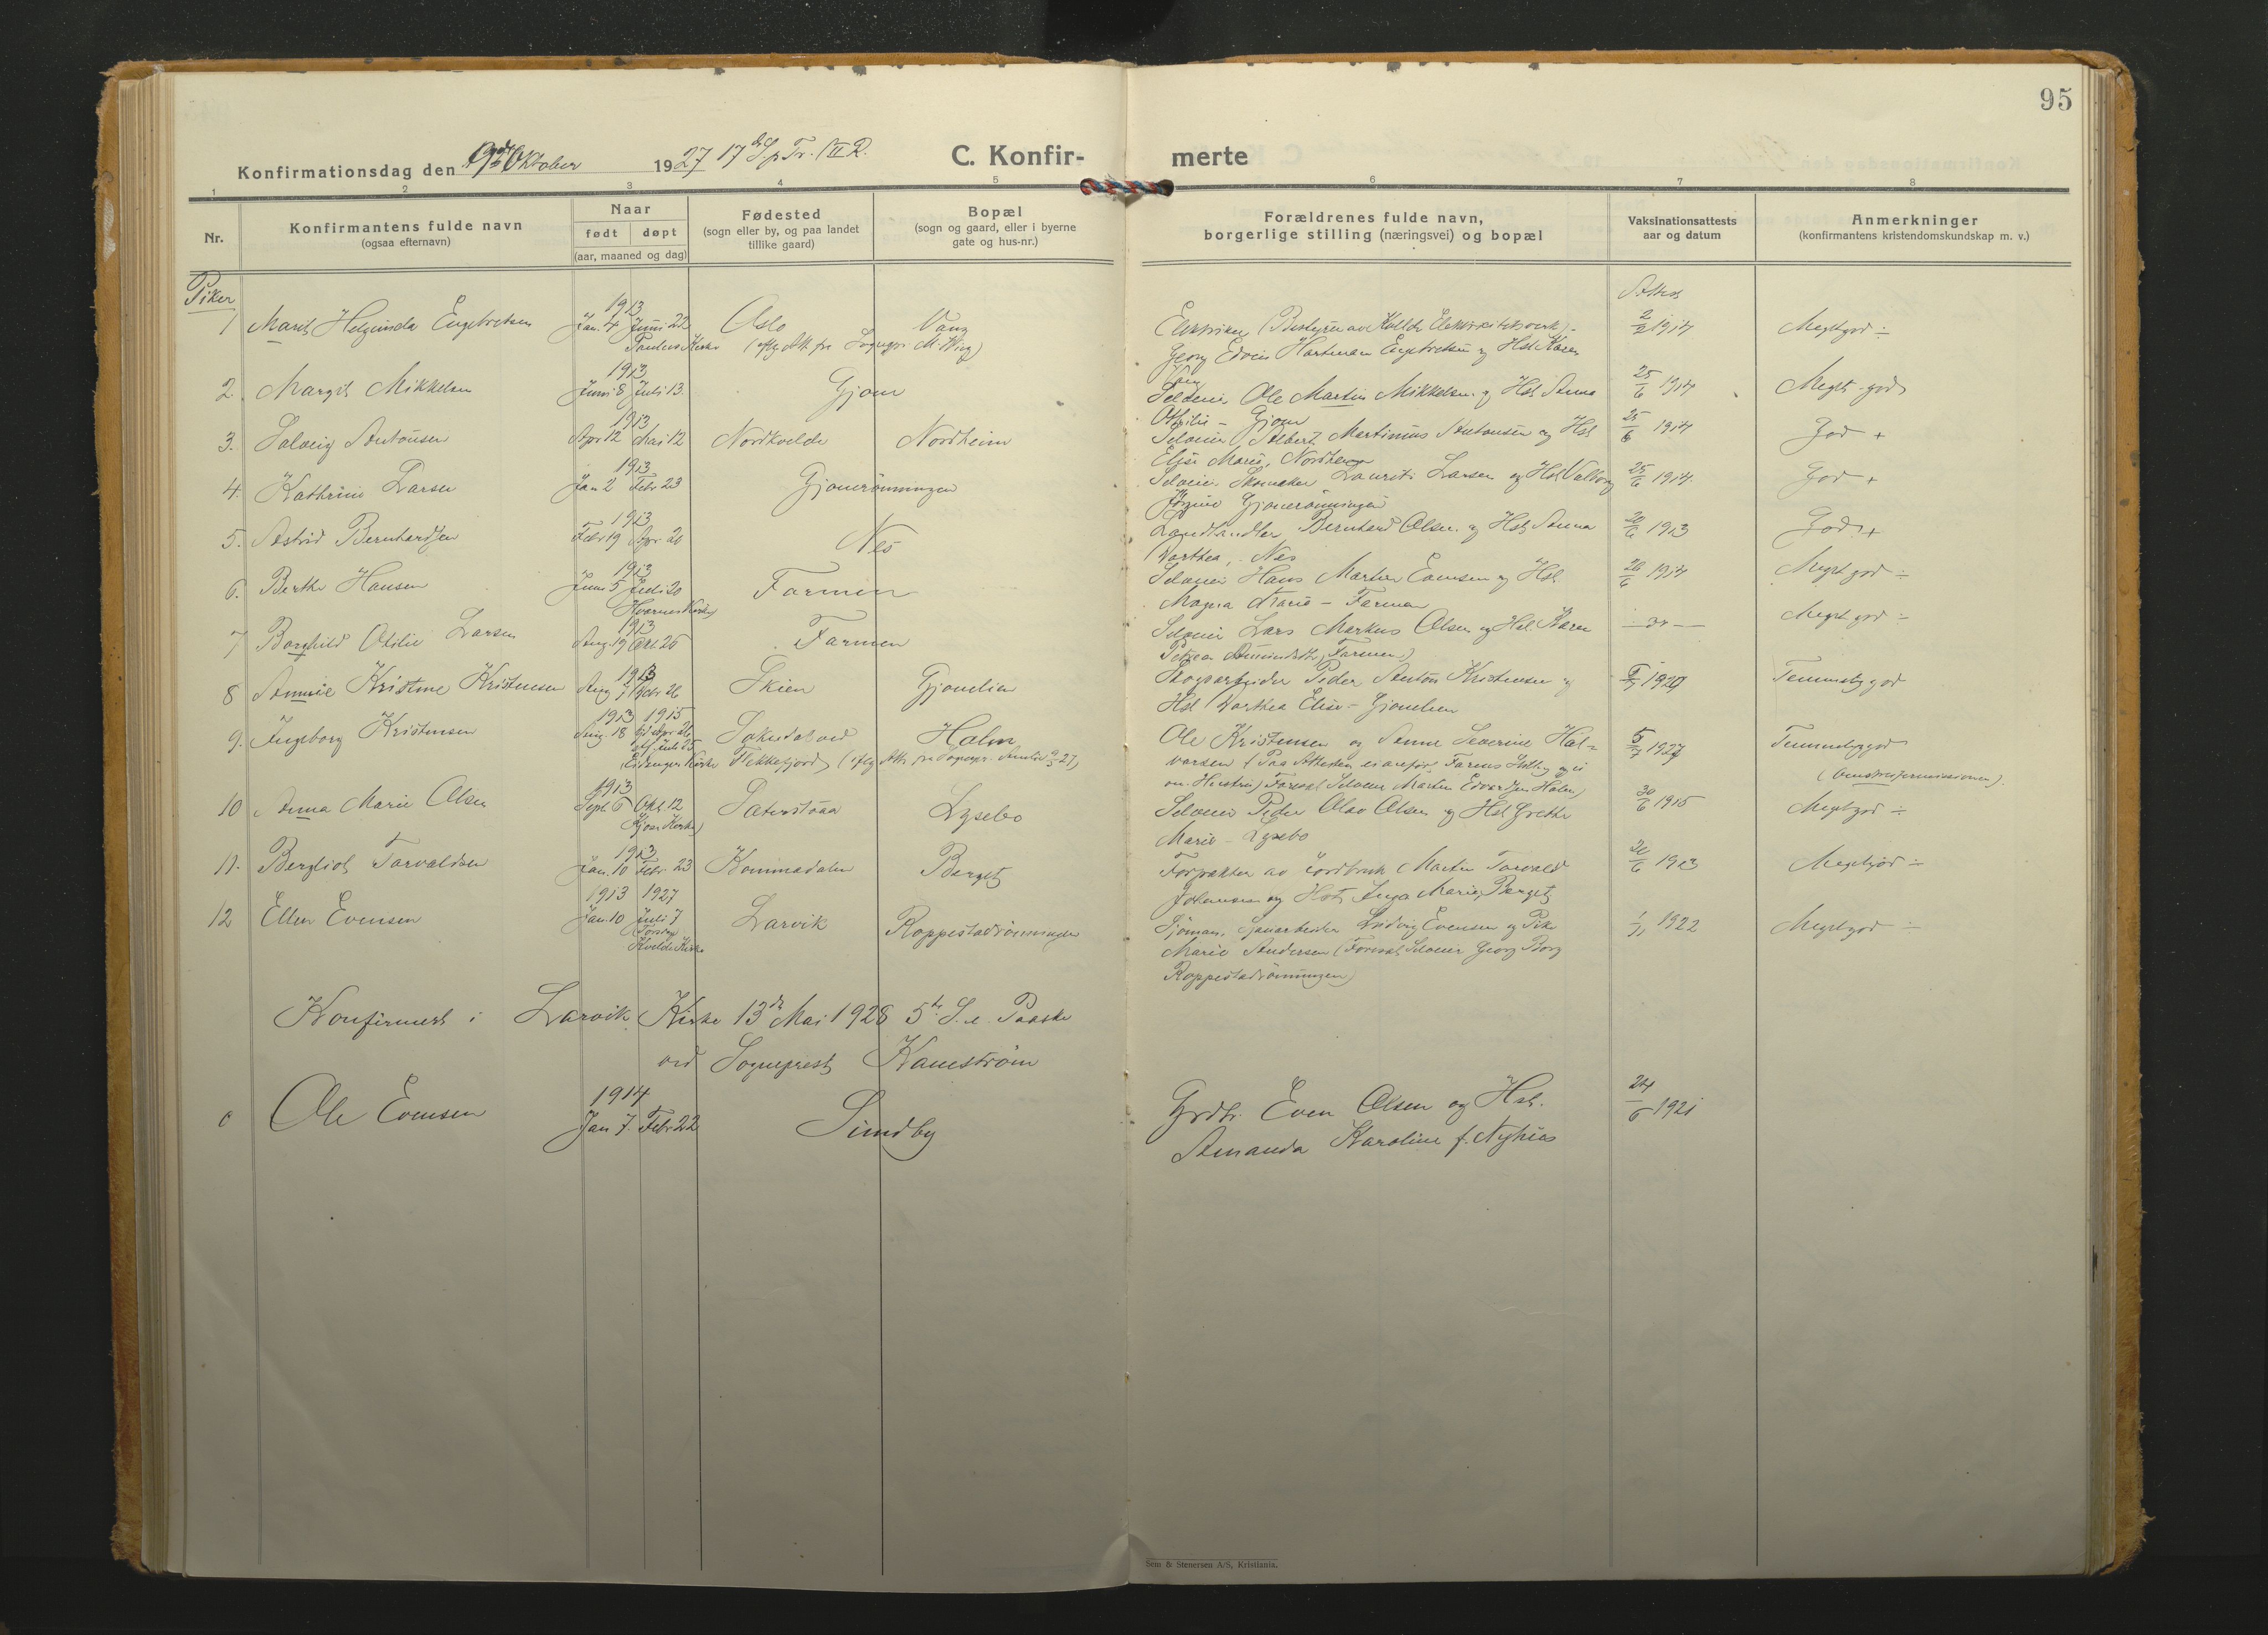 95
Konfirmationsdag den 9de Oktober 1927 17de S. e. Tr. II R.
C. Konfir- merte
1 2 3 4 5 6 7 8
Nr.
Konfirmantens fulde navn
(ogsaa efternavn)
Naar
født døpt
(aar, maaned og dag)
Fødested
(sogn eller by, og paa landet
tillike gaard)
Bopæl
(sogn og gaard, eller i byerne
gate og hus-nr.)
Forældrenes fulde navn,
borgerlige stilling (næringsvei) og bopæl
Vaksinationsattests
aar og datum
Anmerkninger
(konfirmantens kristendomskundskap m. v.)
Piker
Attest
1913
1 Marit Engebretsen Jan. 4 Juni 22 Oslo Elektriker (Bestyrer av Kvelde Elektrisitetsverk) - 2/2 1914 Meget god ÷
Paulus Kirke Georg Edvin Hartman Engebretsen og Hst. Karen
1913
2. Margit Mikkelsen Juni 8 Juli 13. Gjone Selveier Ole Martin Mikkelsen og Hst. Anna 25/6 1914 Meget god
1913 Othilie - Gjone
3. Solveig Antonsen Apr 12 Mai 12 Nordkvelde Nordheim Selveier Albert Martinius Antonsen og Hst. 25/6 1914 God +
1913 Elise Marie, Nordheim
4. Kathrine Larsen Jan 2 Febr 23 Gjonerønningen Selveier Skomaker Laurits Larsen og Hst. Valborg 25/6 1914 God +
1913 Jørgine Gjonerønningen
5. Astrid Bernhardsen Febr 19 Apr. 20 Nes Landhandler Bernhard Olsen og Hst. Anna 20/6 1913 God +
1913 Dorthea, - Nes
6. Berthe Hansen Juni 5 Juli 20 Farmen Selveier Hans Martin Evensen og Hst. 26/6 1914 Meget god ÷
Hvarnes Kirke Magna Marie - Farmen
1913
7 Borghild Otilie Larsen Aug. 19 Okt. 26 Farmen Selveier Lars Markus Olsen og Hst. Karen - do - Meget god ÷
1913 Petrea Farmen)
8 Kristine Kristensen Aug 7 Skien Gjonelien Skogsarbeider Peder Anton Kristensen og 1920 Temmelig god
Hst. Dorthea Elise - Gjonelien
1913 1915
9. Ingeborg Kristensen Aug. 18 Holm Ole Kristensen og Anne Severine Hal= 5/7 1927 Temmelig god
Eidanger Kirke Flekkefjord varsen (Paa Attesten ei anført
om Hustru) Forsat. Selveier Martin Edvardsen Holm)
1913
10 Anna Marie Olsen Sept. 6 Okt. 12 Lysebo Selveier Peder Olav Olsen og Hst. Grethe 30/6 1915 Meget god ÷
(Kjose Kirke) Marie - Lysebo
1913
11. Bergliot Torvaldsen Jan. 10 Febr. 23 Kommadalen Berget Forpakter av Jordbruk Martin Torvald 20/6 1913 Meget god ÷
Johansen og Hst. Inga Marie, Berget
1913 1927
12 Ellen Evensen Jan. 10 Juli 7 Larvik Roppestadrønningen Sjømann, Ludvig Evensen og Pike 1/11 1922 Meget god ÷
Kvelde Kirke Marie Andersen (Forsat. Selveier Georg Borg
Roppestadrønningen)
Konfirmert i Larvik Kirke 13de Mai 1928 5te S. e. Paaske
ved Sogneprest Kamstrøm
1914
Ole Evensen Jan 7. Febr 22 Sundby Grdbr. Even Olsen og Hst. 24/6 1921
Amanda Karoline f. Nyhus
Sem & Stenersen A/S, Kristiania.